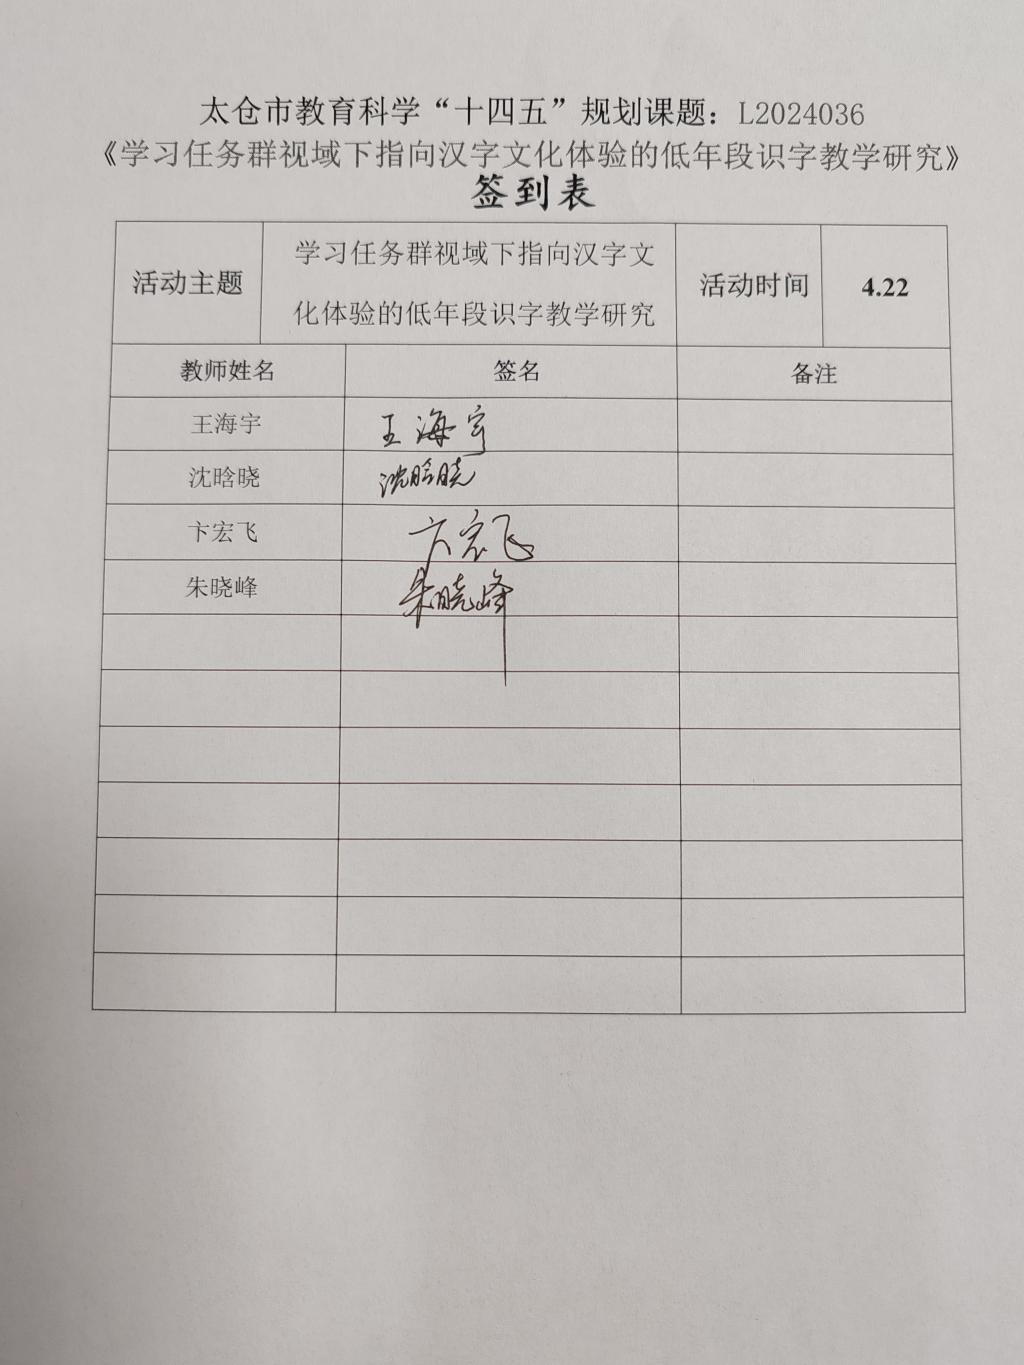 太仓市教育科学“十四五”规划课题：L2024036
《学习任务群视域下指向汉字文化体验的低年段识字教学研究》
签到表
活动主题 学习任务群视域下指向汉字文 活动时间 4.22
化体验的低年段识字教学研究
教师姓名 签名 备注
王海宇 王海宇
沈晗晓 沈晗晓
卞宏飞 卞宏飞
朱晓峰 朱晓峰